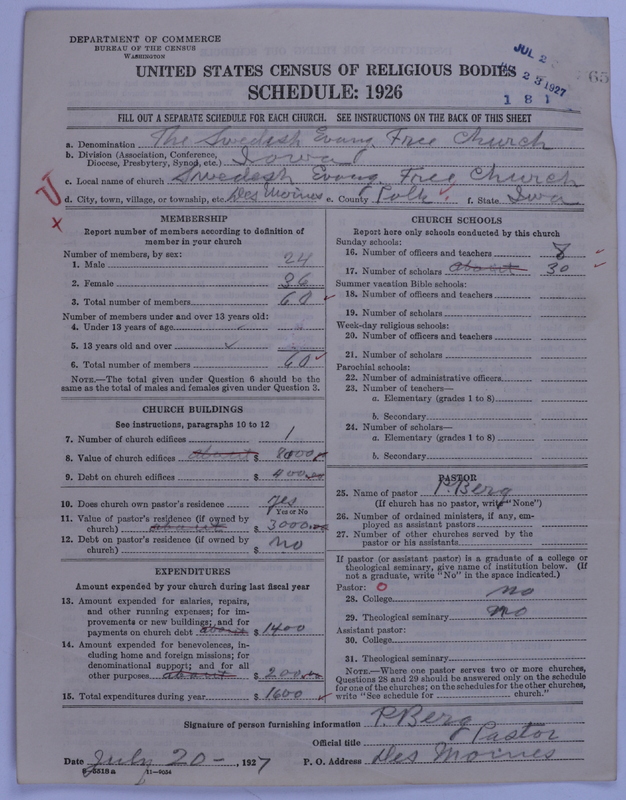 DEPARTMENT OF COMMERCE
BUREAU OF THE CENSUS
WASHINGTON
JUL 2
23 1927
1 8 1
65
UNITED STATES CENSUS OF RELIGIOUS BODIES
SCHEDULE: 1926
FILL OUT A SEPARATE SCHEDULE FOR EACH CHURCH. SEE INSTRUCTIONS ON THE BACK OF THIS SHEET
a. Denomination The Swedish Evang. Free Church
b. Division (Association, Conference, Diocese, Presbytery, Synod, etc.) Iowa
c. Local name of church Swedesh Evang. Free Church
d. City, town, village, or township, etc. Des Moines e. County Polk f. State Iwa
MEMBERSHIP
Report number of members according to definition of
member in your church
Number of members, by sex:
1. Male 24
2. Female 36
3. Total number of members 60
Number of members under and over 13 years old:
4. Under 13 years of age
5. 13 years old and over
6. Total number of members 60
NOTE.—The total given under Question 6 should be the
same as the total of males and females given under Question 3.
CHURCH BUILDINGS
See instructions, paragraphs 10 to 12
7. Number of church edifices 1
8. Value of church edifices about $ 8000
9. Debt on church edifices $ 400.00
10. Does church own pastor's residence yes
Yes or No
11. Value of pastor's residence (if owned by
church) about $ 3000.00
12. Debt on pastor's residence (if owned by
church) $ no
EXPENDITURES
Amount expended by your church during last fiscal year
13. Amount expended for salaries, repairs,
and other running expenses; for im-
provements or new buildings; and for
payments on church debt about $ 1400
14. Amount expended for benevolences, in-
cluding home and foreign missions; for
denominational support; and for all
other purposes about $ 200.00
15. Total expenditures during year $ 1600
CHURCH SCHOOLS
Report here only schools conducted by this church
Sunday schools:
16. Number of officers and teachers 8
17. Number of scholars about 30
Summer vacation Bible schools:
18. Number of officers and teachers
19. Number of scholars
Week-day religious schools:
20. Number of officers and teachers
21. Number of scholars
Parochial schools:
22. Number of administrative officers
23. Number of teachers—
a. Elementary (grades 1 to 8)
b. Secondary
24. Number of scholars—
a. Elementary (grades 1 to 8)
b. Secondary
PASTOR
25. Name of pastor P. Berg
(If church has no pastor, write "None")
26. Number of ordained ministers, if any, em-
ployed as assistant pastors
27. Number of other churches served by the
pastor or his assistants
If pastor (or assistant pastor) is a graduate of a college or
theological seminary, give name of institution below. (If
not a graduate, write "No" in the space indicated.)
Pastor: 0
28. College no
29. Theological seminary no
Assistant pastor:
30. College
31. Theological seminary
NOTE.—Where one pastor serves two or more churches,
Questions 28 and 29 should be answered only on the schedule
for one of the churches; on the schedules for the other churches,
write "See schedule for church."
Signature of person furnishing information P. Berg
Official title Pastor
Date July 20 -, 1927 P. O. Address Des Moines
8-5518a 11-9034